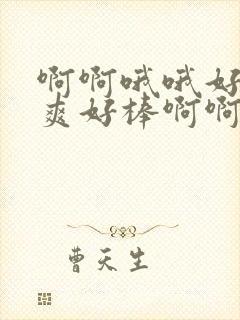 啊啊哦哦好
爽好棒啊啊
曹天生